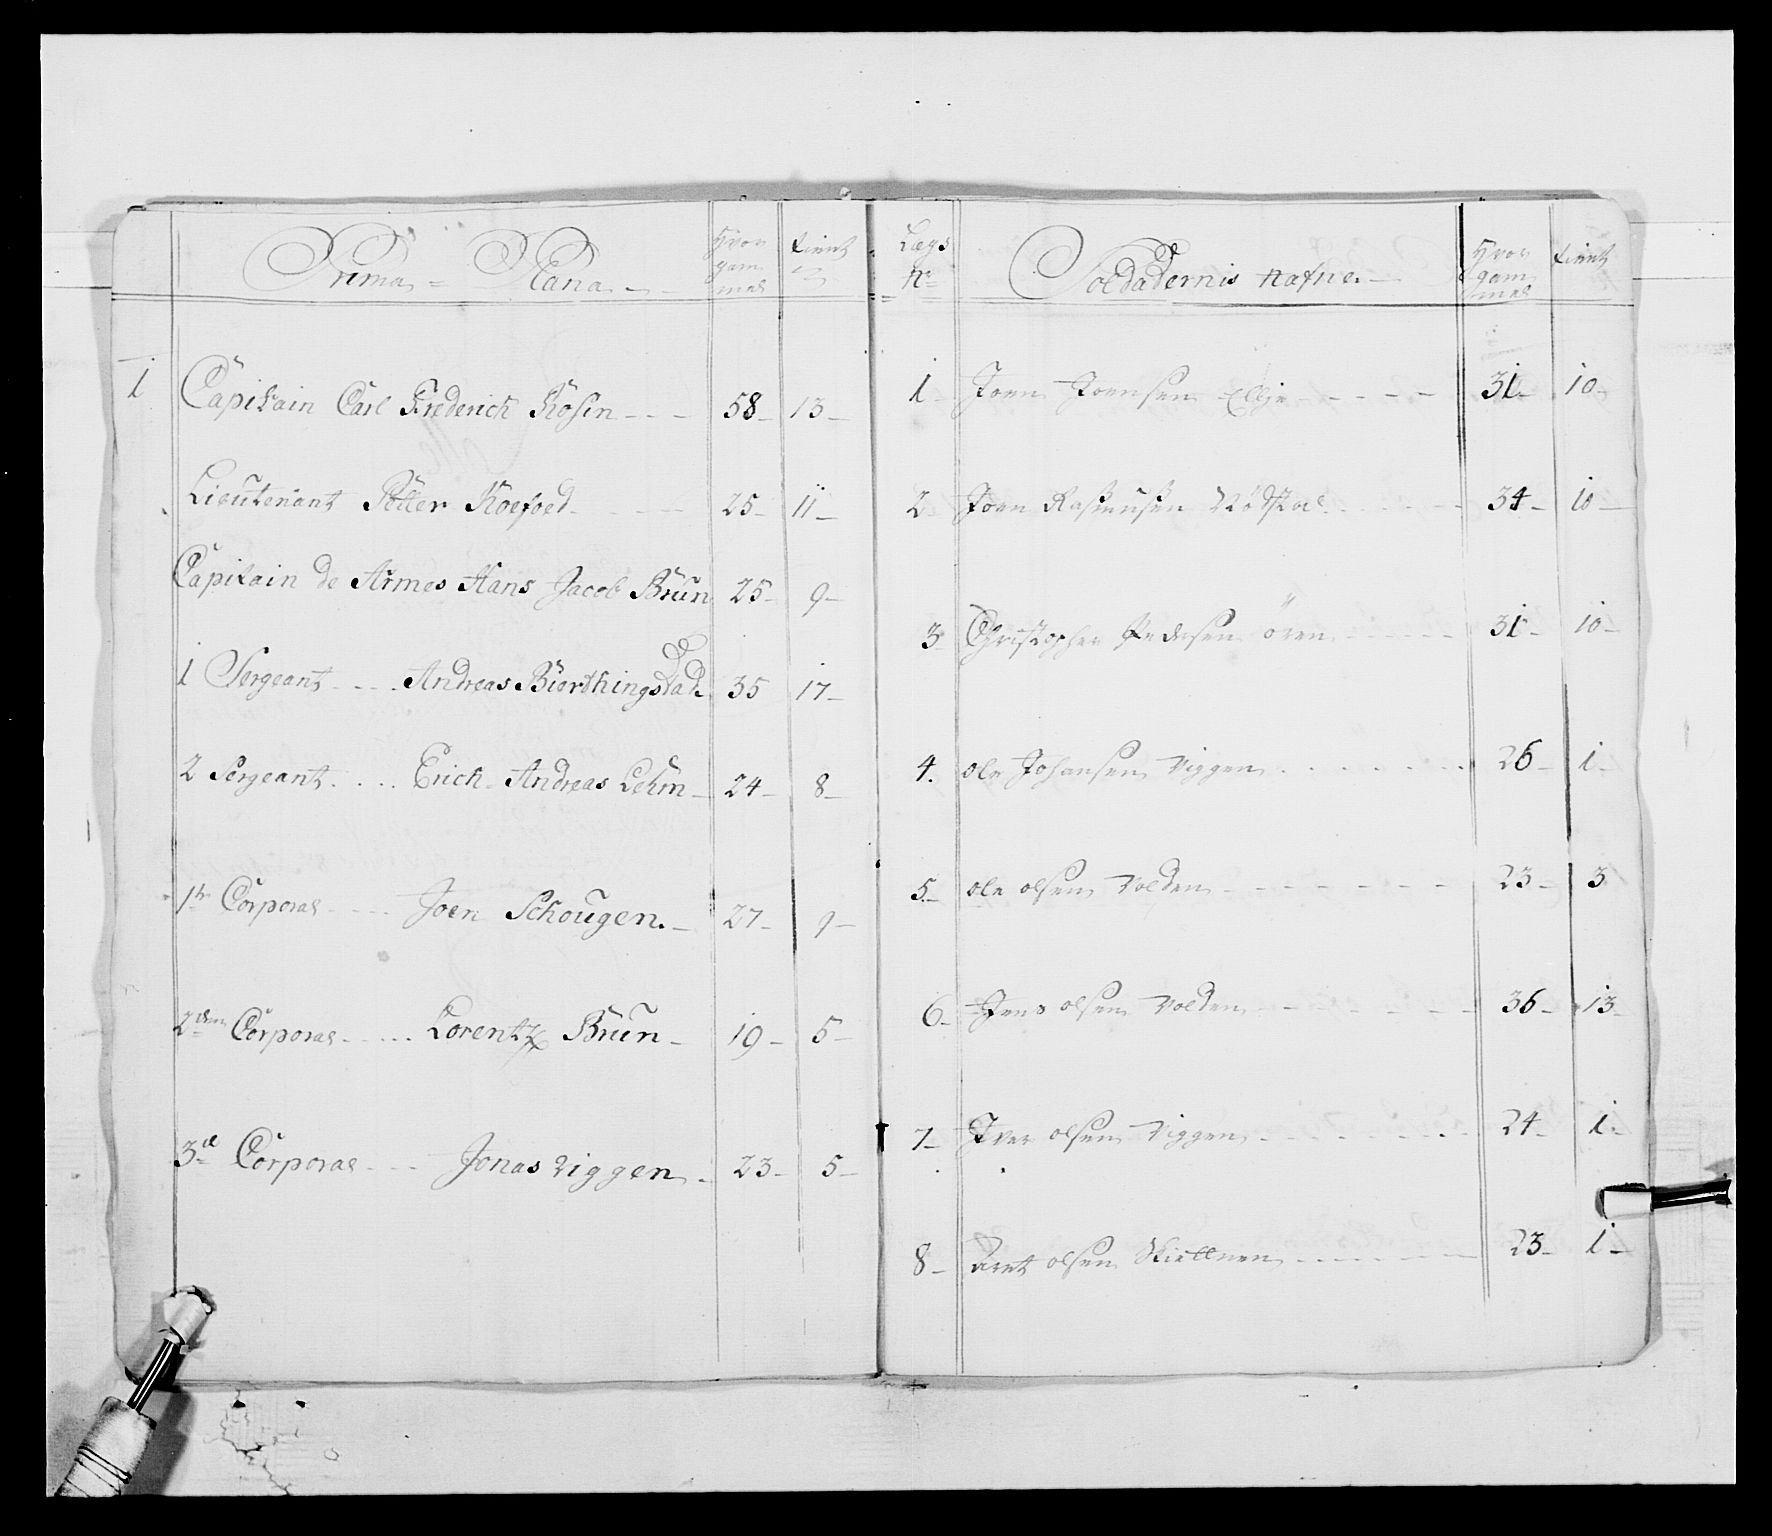 Prima Plana
Hvor gam mel
tient
1 Capitain Carl Frederich Rosin 58 13
Lieutenant Petter Koefoed 25 11
Capitain de Armes Hans Jacob Brun 25 9
1 Sergeant Andreas Biorthingstad 35 17
2 Sergeant Erich Andreas Lehm 24 8
1te Corporal Joen Schougen 27 9
2den Corporal Lorentz Brun 19 5
3e Corporal Jonas Viggen 23 5
Lægs No
Soldadernis nafne
Hvor gam mel
tient
1 Joen Joensen Elje 31 10
2 Joen Rasmusen 34 10
3 Christopher Pedersen Ören 31 10
4. ole Johansen Viggen 26 1
5 ole olsen Volden 23 3
6 Jens olsen Volden 36 13
7 Iver olsen Viggen 24 1
8 Arnt olsen 23 1